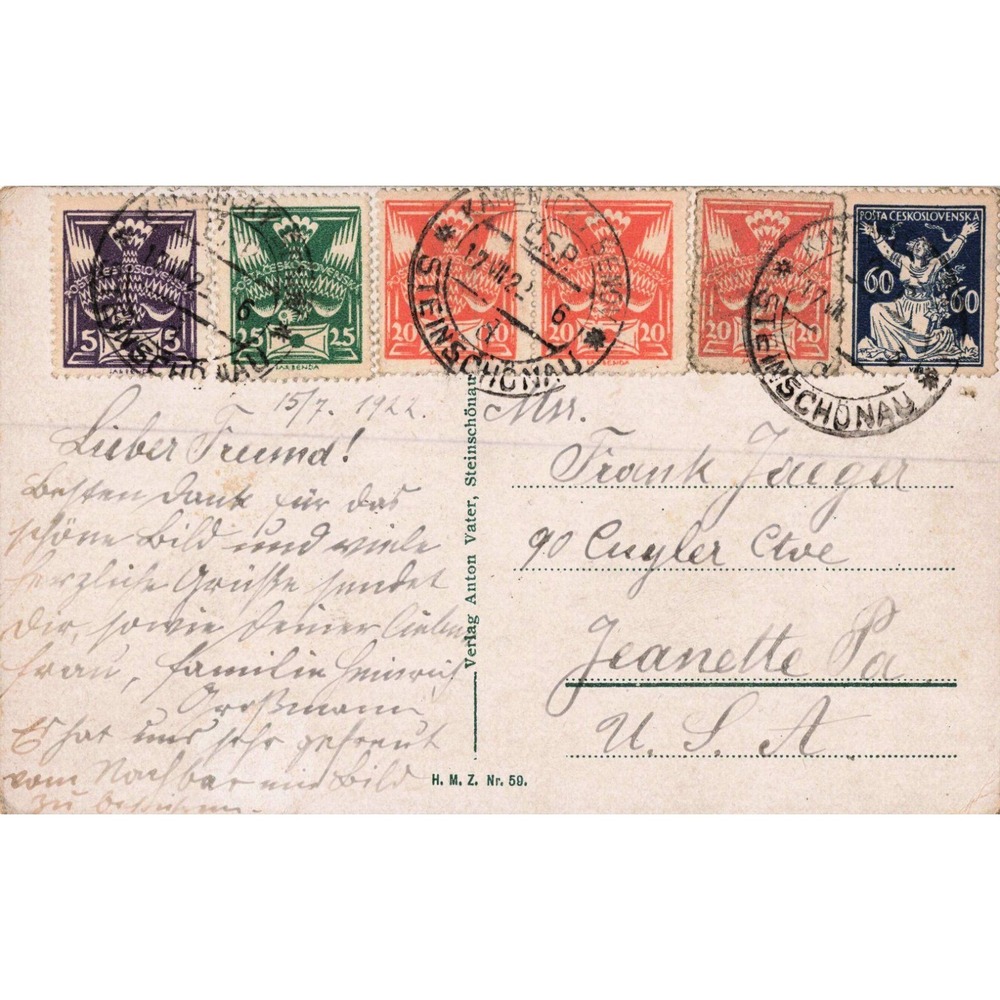 POŠTA ČESKOSLOVENSKÁ
5 5
25 25
20 20
20 20
20 20
60 60
KAMENICKÝ ŠENOV
Č.S.P.
17 VII 22 6
STEINSCHÖNAU
15/7. 1922.
Lieber Freund!
Besten Dank für das
schöne Bild und viele
herzliche Grüße sendet
Dir, sowie Deiner lieben
Frau, Familie Heinrich
Großmann
Es hat uns sehr gefreut
vom Nachbar ein Bild
zu bekommen.
Verlag Anton Vater, Steinschönau
H. M. Z. Nr. 59.
Mr.
Frank Jaeger
90 Cuyler Ave
Jeanette Pa
U. S. A